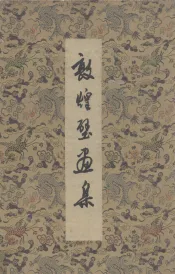 敦煌壁画集